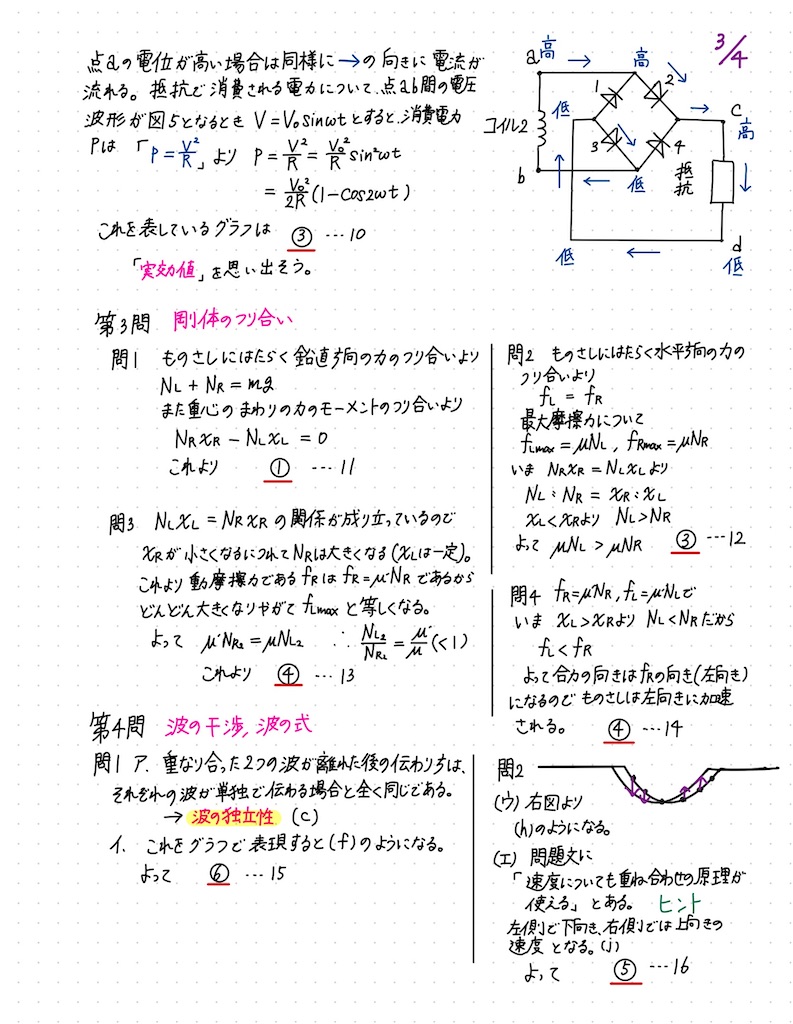 3/4
点aの電位が高い場合は同様に→の向きに電流が
流れる。抵抗で消費される電力について、点ab間の電圧
波形が図5となるとき V=V₀sinωtとすると、消費電力
Pは 「P=V²/R」より P=V²/R=V₀²/R sin²ωt
=V₀²/2R(1-cos2ωt)
これを表しているグラフは ③ …10
「実効値」を思い出そう。
a 高 → 高
1 2
低 → c
コイル2 高
3 4
b ← 低 抵抗
低 ← d
低
第3問 剛体のつり合い
問1 ものさしにはたらく鉛直方向の力のつり合いより
NL+NR=mg
また重心のまわりの力のモーメントのつり合いより
NRxR-NLxL=0
これより ① …11
問2 ものさしにはたらく水平方向の力の
つり合いより
fL=fR
最大摩擦力について
fLmax=μNL, fRmax=μNR
いま NRxR=NLxLより
NL:NR=xR:xL
xL<xRより NL>NR
よって μNL>μNR ③ …12
問3 NLxL=NRxRの関係が成り立っているので
xRが小さくなるにつれてNRは大きくなる(xLは一定)。
これより動摩擦力であるfRはfR=μ'NRであるから
どんどん大きくなりやがてfLmaxと等しくなる。
よって μ'NR2=μNL2 ∴ NL2/NR2=μ'/μ(<1)
これより ④ …13
問4 fR=μ'NR, fL=μ'NLで
いま xL>xRより NL<NRだから
fL<fR
よって合力の向きはfRの向き(左向き)
になるのでものさしは左向きに加速
される。 ④ …14
第4問 波の干渉,波の式
問1 ア. 重なり合った2つの波が離れた後の伝わり方は、
それぞれの波が単独で伝わる場合と全く同じである。
→波の独立性 (c)
イ. これをグラフで表現すると(f)のようになる。
よって ⑥ …15
問2
(ウ) 右図より
(h)のようになる。
(エ) 問題文に
「速度についても重ね合わせの原理が
使える」とある。 ヒント
左側で下向き、右側では上向きの
速度となる。(j)
よって ⑤ …16